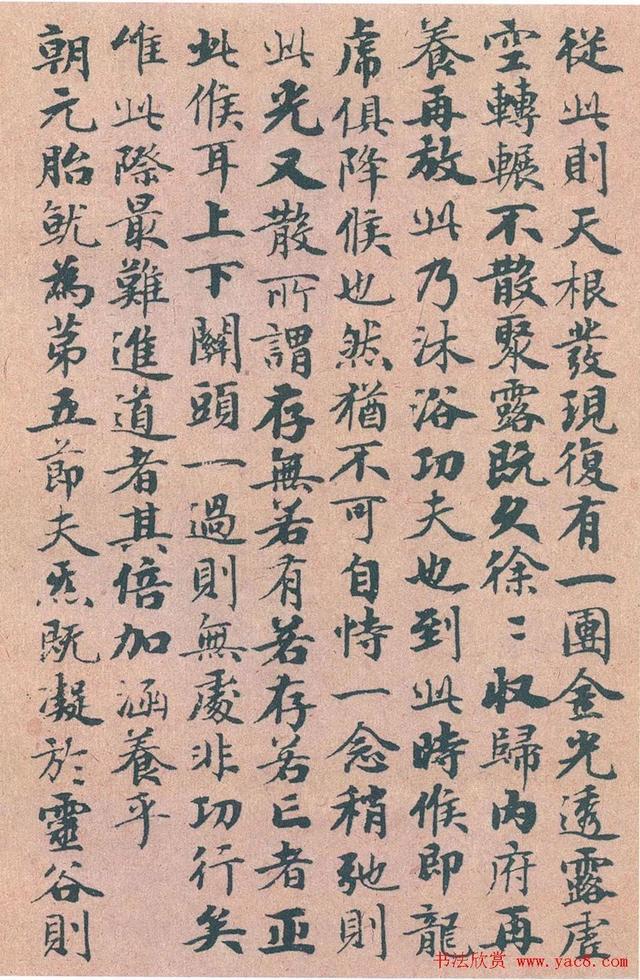 從此則天根發現復有一團金光透露虛
空轉輾不散聚露既久徐〻收歸內府再
養再放此乃沐浴功夫也到此時候即龍
虎俱降候也然猶不可自恃一念稍弛則
此光又散所謂存無若有若存若亡者正
此候耳上下關頭一過則無處非功行矣
惟此際最難進道者其倍加涵養乎
朝元胎就為第五節夫炁既凝於靈谷則
书法欣赏 →www.yac8.com